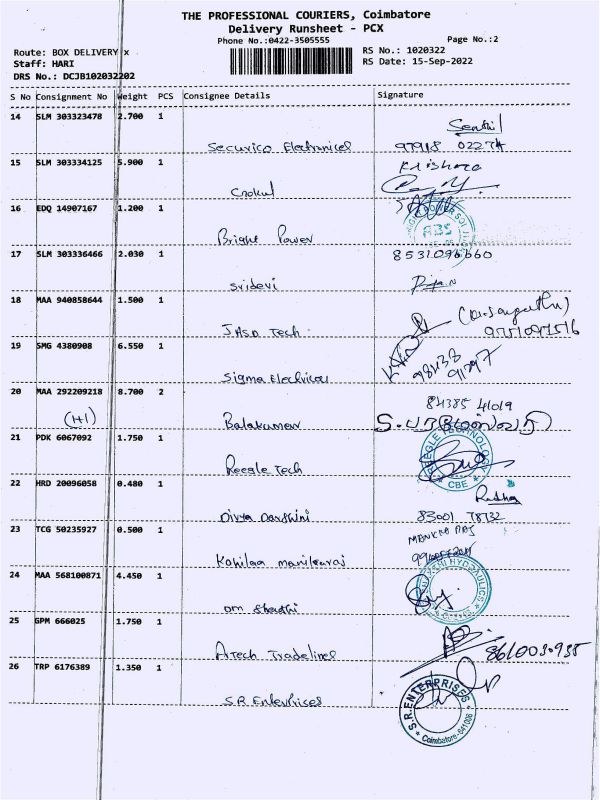 THE PROFESSIONAL COURIERS, Coimbatore
Delivery Runsheet - PCX
Phone No.:0422-3505555
Page No.:2
Route: BOX DELIVERY x
RS No.: 1020322
Staff: HARI
RS Date: 15-Sep-2022
DRS No.: DCJB102032202
S No Consignment No Weight PCS Consignee Details Signature
14 SLM 303323478 2.700 1
Senthil
Securico Electronices 97918 02274
15 SLM 303334125 5.900 1
Krishna
Gokul
16 EDQ 14907167 1.200 1
ABS
Bright Power
17 SLM 303336466 2.030 1 8531096660
Sridevi
18 MAA 940858644 1.500 1
JASD Tech
9751097516
19 SMG 4380908 6.550 1
98438
91797
Sigma Electrical
20 MAA 292209218 8.700 2
84385 41019
(1+1)
Balakumar
21 PDK 6067092 1.750 1
REEGLE TECHNOLOGY
CBE
Reegle Tech
22 HRD 20096058 0.480 1
Radha
Divya Darshini 83001 78732
23 TCG 50235927 0.500 1
Kohilaa manikaraj
24 MAA 568100871 4.450 1
HYDRAULICS
om Shakthi
25 GPM 666025 1.750 1
Atech Tradelines 8610030935
26 TRP 6176389 1.350 1
S.R. Enterprises
S.R. ENTERPRISES
Coimbatore-641006